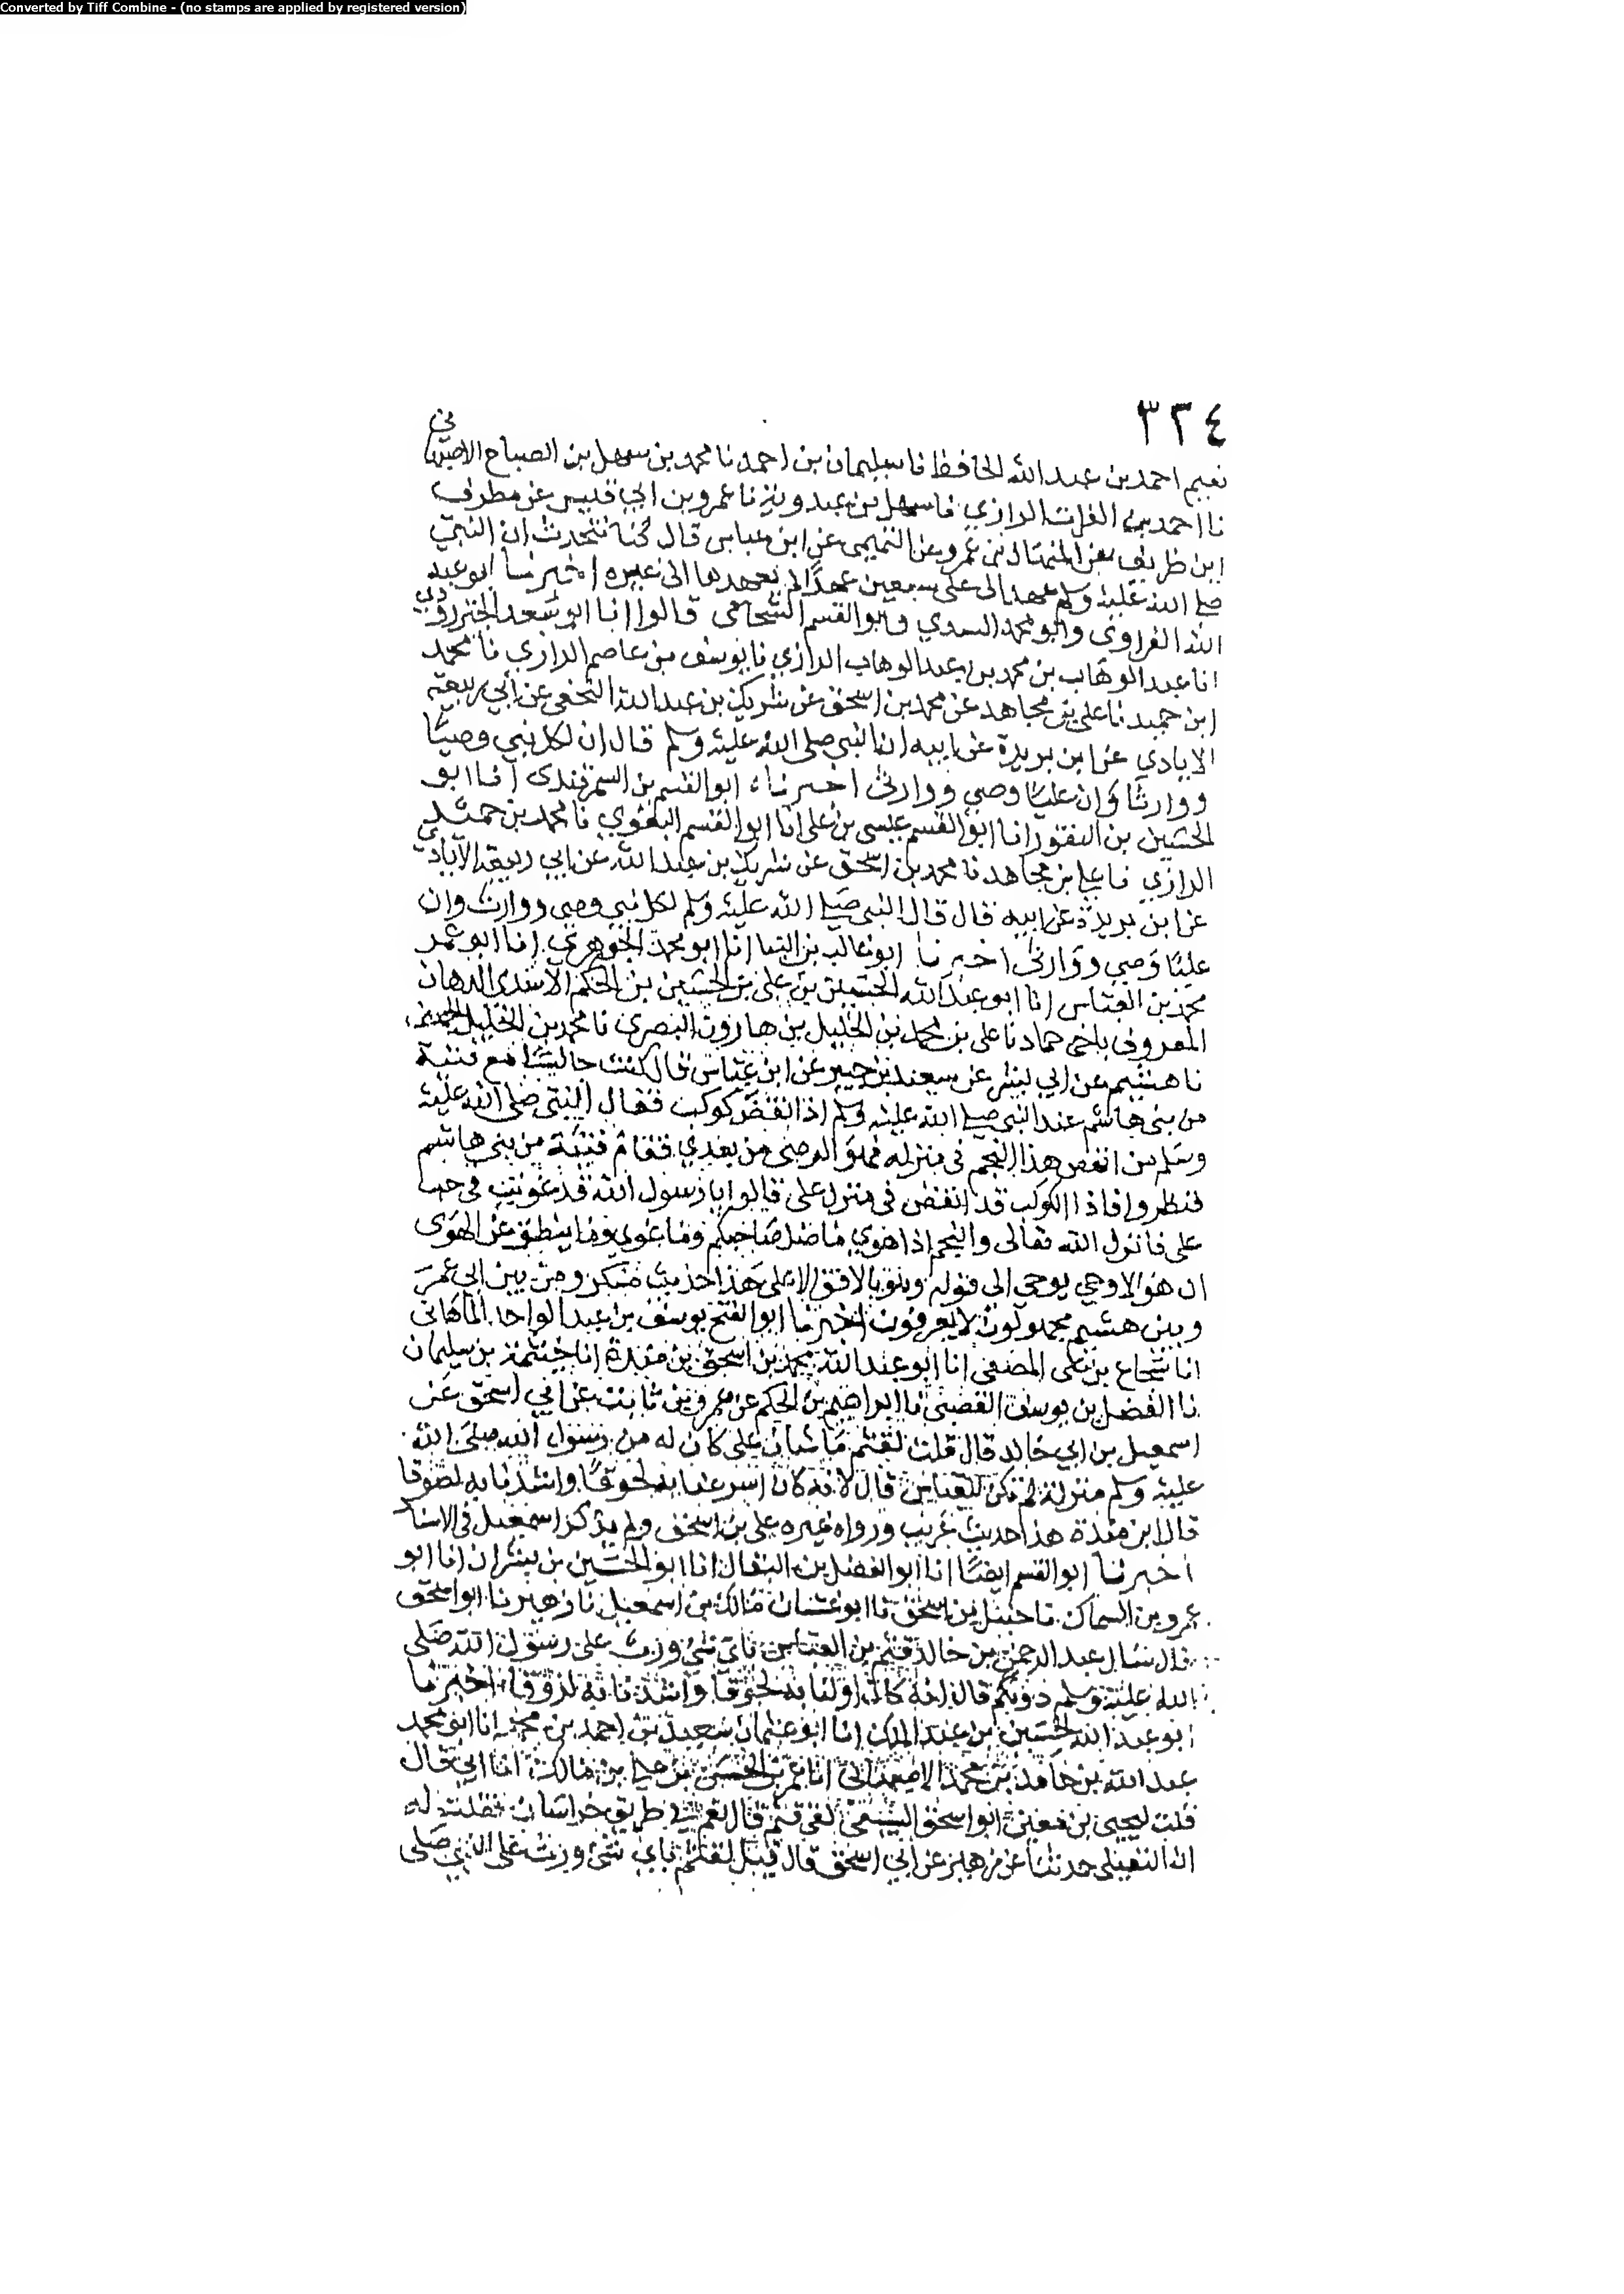 Converted by Tiff Combine - (no stamps are applied by registered version)
٣٣٤
نعيم احمد بن عبد الله الحافظ نا سليمان بن احمد نا محمد بن سهل بن الصباح الاصبهاني
نا احمد بن الفرات الرازي نا سهل بن عبدويه نا عمرو بن ابي قيس عن مطرف
ابن طريف عن المنهال بن عمرو عن التميمي عن ابن عباس قال كنا نتحدث ان النبي
صلى الله عليه وسلم عهد الى علي سبعين عهدا لم يعهدها الى غيره اخبرنا ابو عبد
الله الفراوي وابو محمد السدي وابو القسم الشحامي قالوا انا ابو سعد الجنزرودي
انا عبد الوهاب بن محمد بن عبد الوهاب الرازي نا يوسف بن عاصم الرازي نا محمد
ابن حميد نا علي بن مجاهد عن محمد بن اسحق عن شريك بن عبد الله النخعي عن ابي ربيعة
الايادي عن ابن بريدة عن ابيه ان النبي صلى الله عليه وسلم قال ان لكل نبي وصيا
ووارثا وان عليا وصي ووارثي اخبرنا ابو القسم بن السمرقندي انا ابو
الحسين بن النقور انا ابو القسم عيسى بن علي انا ابو القسم البغوي نا محمد بن حميد
الرازي نا علي بن مجاهد نا محمد بن اسحق عن شريك بن عبد الله عن ابي ربيعة الايادي
عن ابن بريدة عن ابيه قال قال النبي صلى الله عليه وسلم لكل نبي وصي ووارث وان
عليا وصيي ووارثي اخبرنا ابو غالب بن البنا انا ابو محمد الجوهري انا ابو عمر
محمد بن العباس انا ابو عبد الله الحسين بن علي بن الحسين بن الحكم الاسدي الدهان
المعروف باخي حماد نا علي بن محمد بن الخليل بن هارون البصري نا محمد بن الخليل الجهني
نا هشيم عن ابي بشر عن سعيد بن جبير عن ابن عباس قال كنت جالسا مع فتية
من بني هاشم عند النبي صلى الله عليه وسلم اذ انقض كوكب فقال النبي صلى الله عليه
وسلم من انقض هذا النجم في منزله فهو الوصي من بعدي فقام فتية من بني هاشم
فنظروا فاذا الكوكب قد انقض في منزل علي قالوا يا رسول الله قد غويت في حب
علي فانزل الله تعالى والنجم اذا هوى ما ضل صاحبكم وما غوى وما ينطق عن الهوى
ان هو الا وحي يوحى الى قوله وهو بالافق الاعلى هذا حديث منكر ومن بين ابي عمر
وبين هشيم مجهولون لا يعرفون اخبرنا ابو الفتح يوسف بن عبد الواحد الماهاني
انا شجاع بن علي المصقلي انا ابو عبد الله محمد بن اسحق بن مندة انا خيثمة بن سليمان
نا الفضل بن يوسف القصبي نا ابراهيم بن الحكم عن عمرو بن ثابت عن ابي اسحق عن
اسمعيل بن ابي خالد قال قلت لقثم ما شان علي كان له من رسول الله صلى الله
عليه وسلم منزلة لم تكن للعباس قال لانه كان اسرعنا به لحوقا واشدنا به لصوقا
قال ابن مندة هذا حديث غريب ورواه غيره علي بن اسحق ولم يذكر اسمعيل في الاسناد
اخبرنا ابو القسم ايضا انا ابو الفضل بن البقال انا ابو الحسين بن بشران انا ابو
عمرو بن السماك نا حنبل بن اسحق نا ابو غسان مالك بن اسمعيل نا زهير نا ابو اسحق
قال سال عبد الرحمن بن خالد قثم بن العباس باي شي ورث علي رسول الله صلى
الله عليه وسلم دونكم قال انه كان اولنا به لحوقا واشدنا به لزوقا اخبرنا
ابو عبد الله الحسين بن عبد الملك انا ابو عثمان سعيد بن احمد بن محمد انا ابو محمد
عبد الله بن حامد بن محمد الاصبهاني انا عمر بن الحسن بن علي بن مالك انا ابي قال
قلت ليحيى بن معين ابو اسحق السبيعي لقي قثم قال نعم في طريق خراسان فقلت له
ان النفيلي حدثنا عن زهير عن ابي اسحق قال قيل لقثم باي شي ورث علي النبي صلى